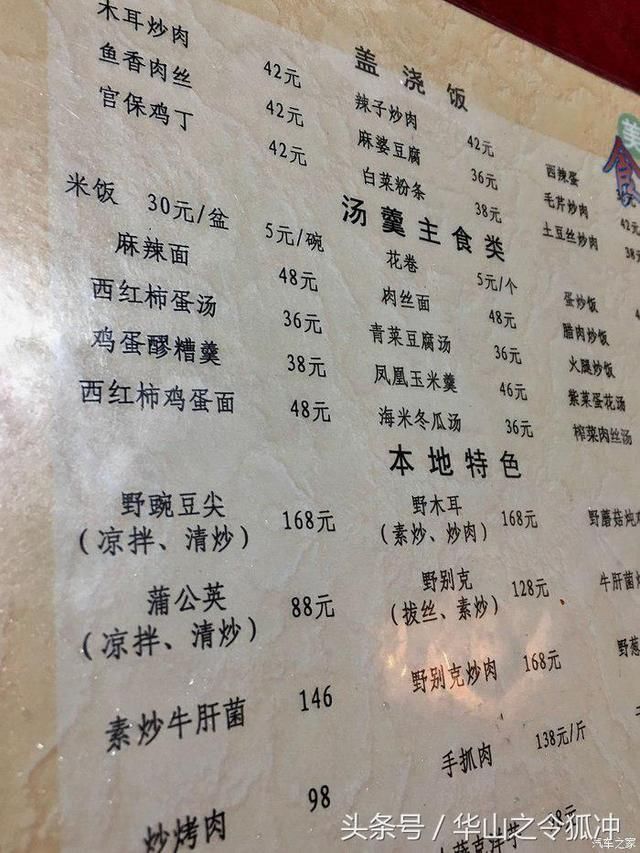 木耳炒肉 42元
鱼香肉丝 42元
官保鸡丁 42元
盖浇饭
辣子炒肉 42元
麻婆豆腐 36元
白菜粉条 38元
西辣蛋
毛芹炒肉
土豆丝炒肉
美
食
汤羹主食类
米饭 30元/盆 5元/碗
麻辣面 48元
西红柿蛋汤 36元
鸡蛋醪糟羹 38元
西红柿鸡蛋面 48元
花卷 5元/个
肉丝面 48元
青菜豆腐汤 36元
凤凰玉米羹 46元
海米冬瓜汤 36元
蛋炒饭
腊肉炒饭
火腿炒饭
紫菜蛋花汤
榨菜肉丝汤
本地特色
野豌豆尖 168元
(凉拌、清炒)
蒲公英 88元
(凉拌、清炒)
素炒牛肝菌 146
炒烤肉 98
野木耳 168元
(素炒、炒肉)
野别克 128元
(拔丝、素炒)
野别克炒肉 168元
手抓肉 138元/斤
野蘑菇炖
牛肝菌
野葱
头条号/华山之令狐冲
汽车之家